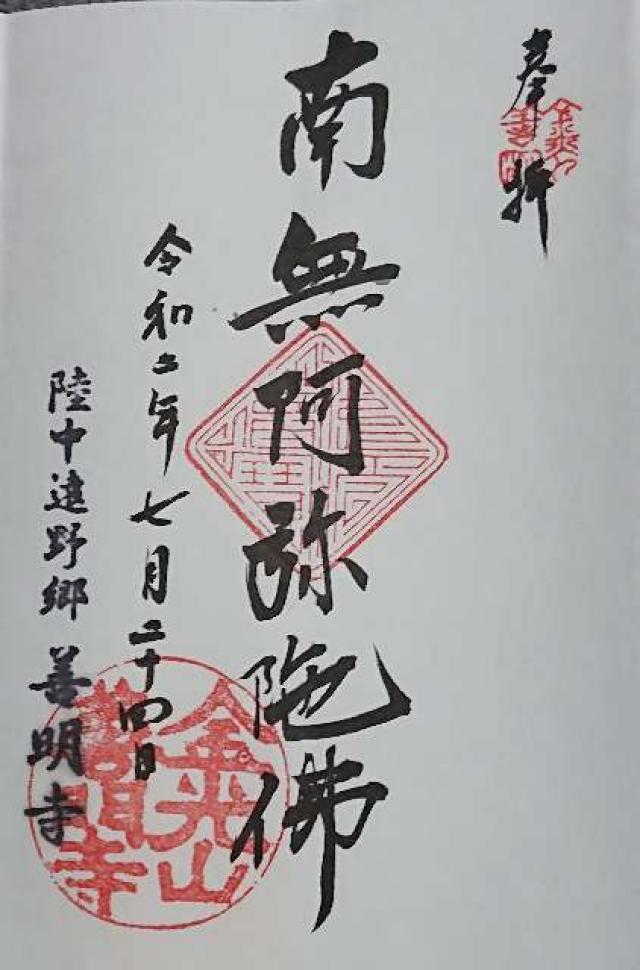 奉拝
南無阿弥陀佛
令和二年七月二十四日
陸中遠野郷 善明寺
金光山
善明寺